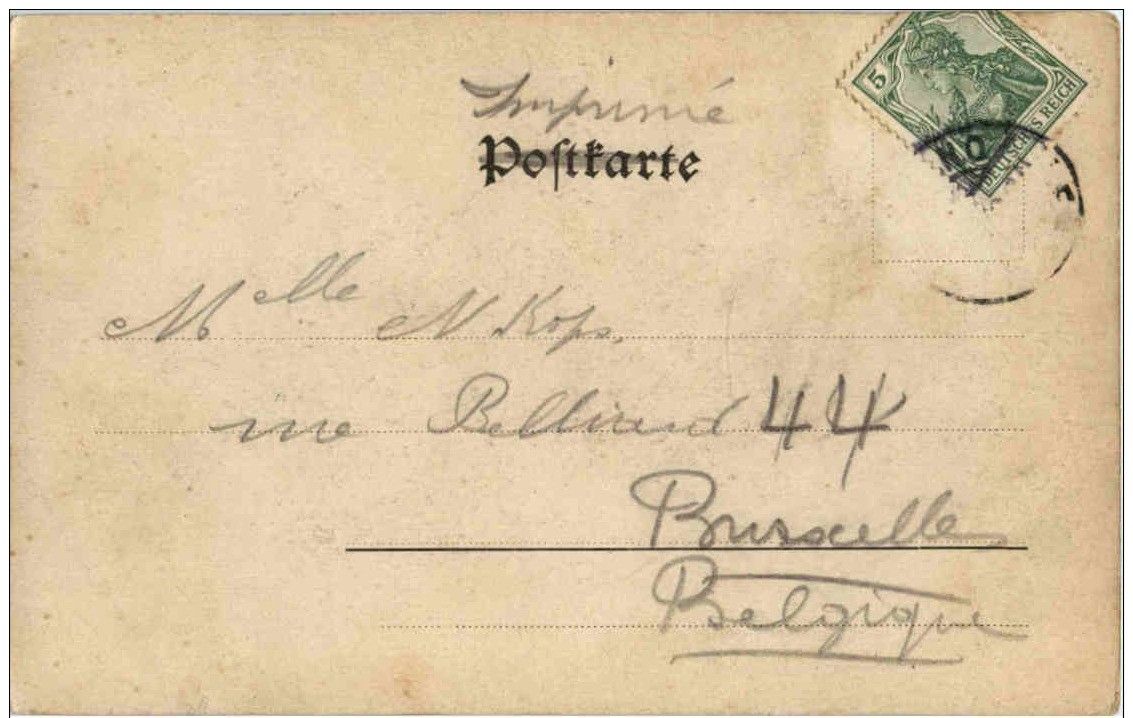 Imprimé
Postkarte
5
DEUTSCHES REICH
Mlle N Kops,
rue Belliard 44
Bruxelles
Belgique